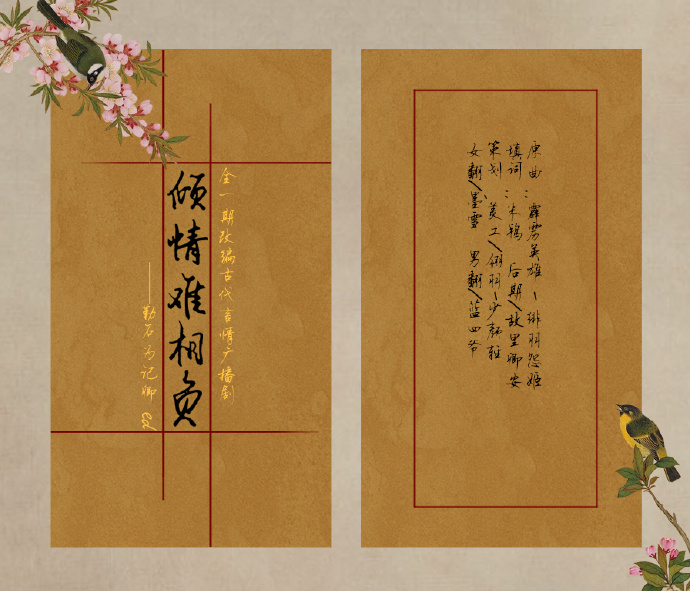 全一期改编古代言情广播剧
倾情难相负
——勒石为记卿
原曲：霹雳英雄－琳羽怨姬
填词：木鸦 后期／故里卿安
策划：美工／翎羽－少
女翻／墨雪 男翻／蓝四爷